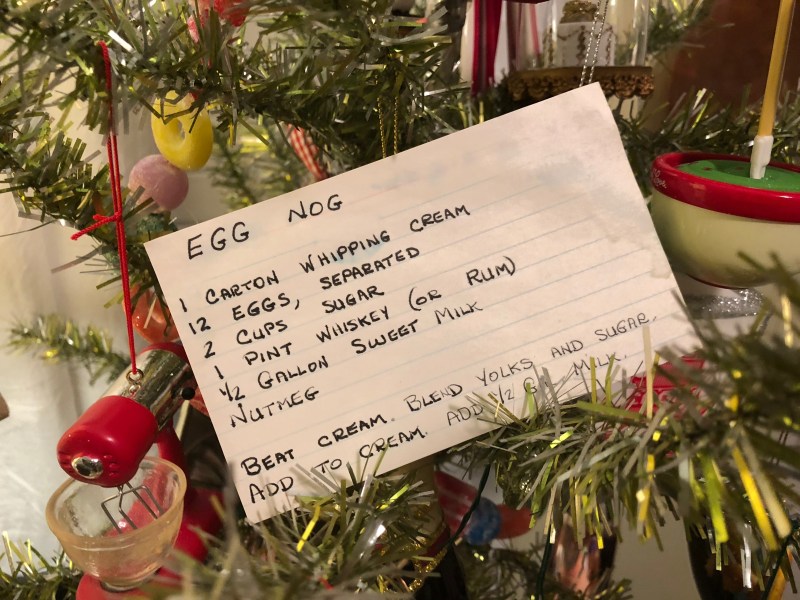 EGG NOG
1 CARTON WHIPPING CREAM
12 EGGS, SEPARATED
2 CUPS SUGAR
1 PINT WHISKEY (OR RUM)
1/2 GALLON SWEET MILK
NUTMEG
BEAT CREAM. BLEND YOLKS AND SUGAR.
ADD TO CREAM. ADD 1/2 MILK.